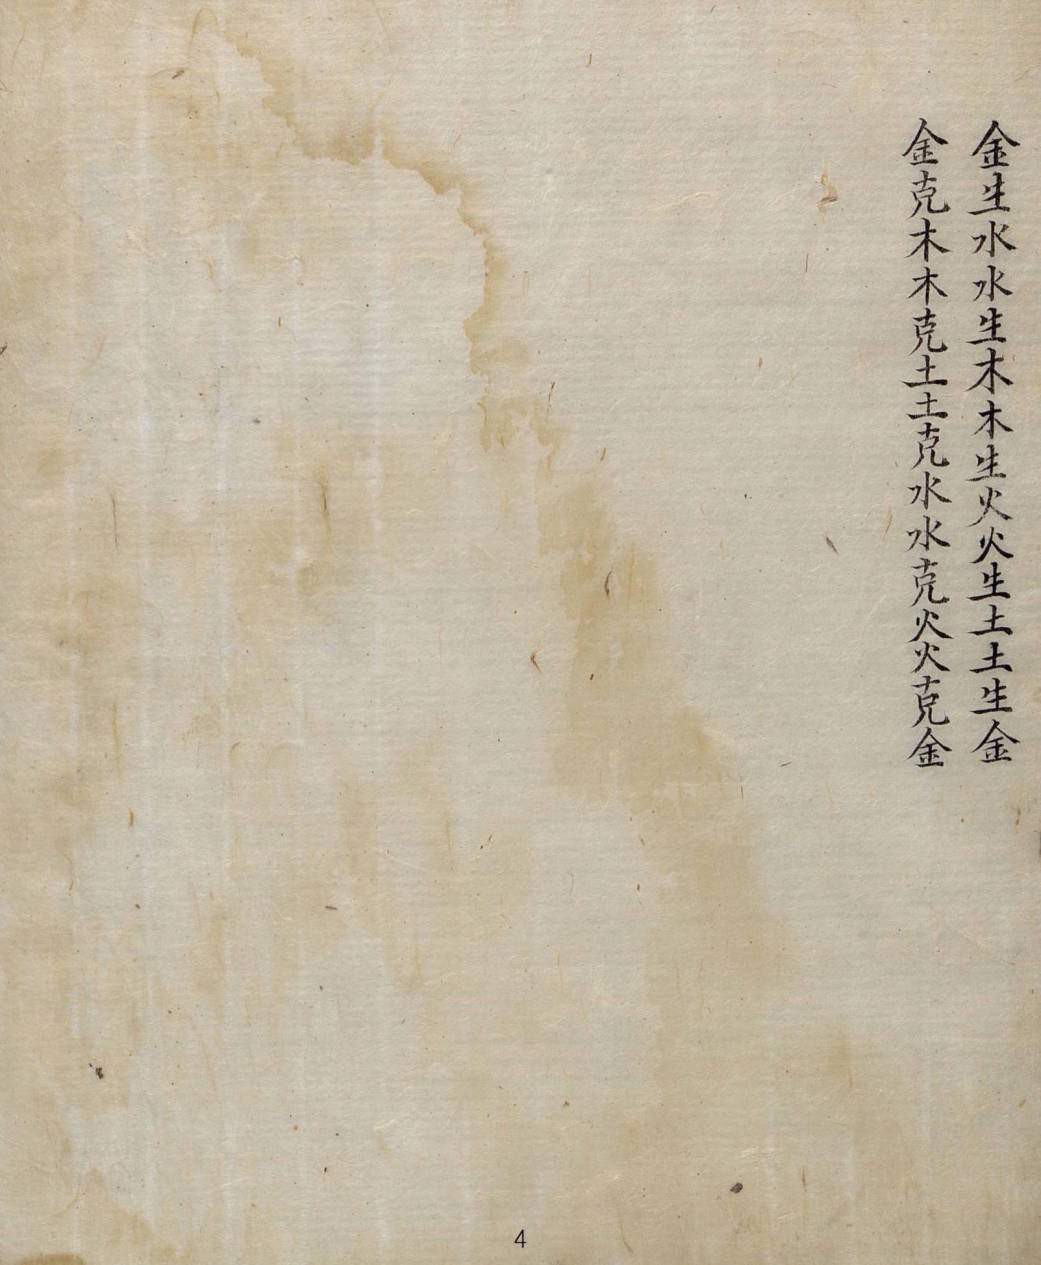 金生水水生木木生火火生土土生金
金克木木克土土克水水克火火克金
4